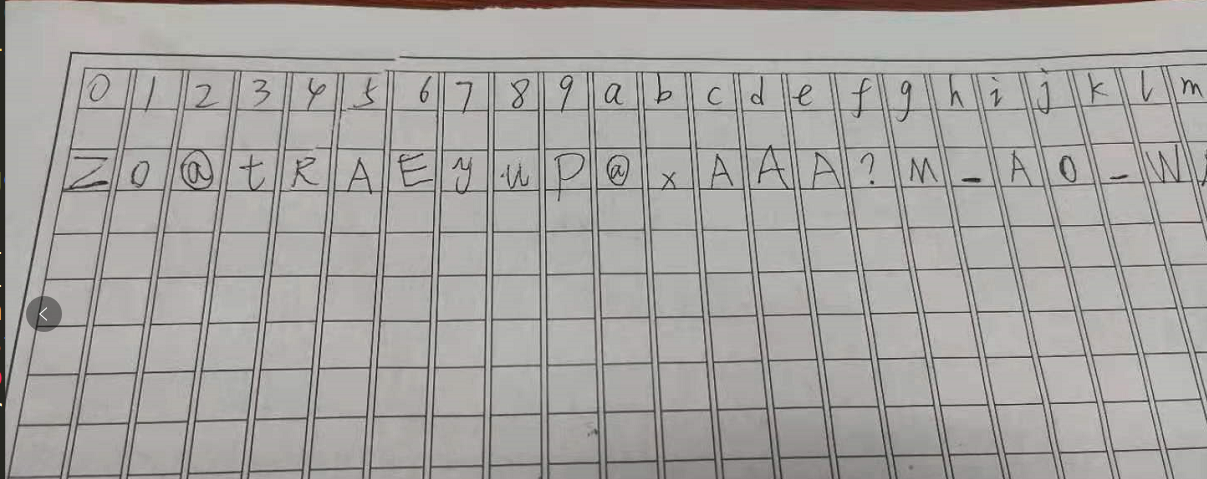 0 1 2 3 4 5 6 7 8 9 a b c d e f g h i j k l m
Z O @ t R A E y u P @ x A A A ? M _ A O _ W